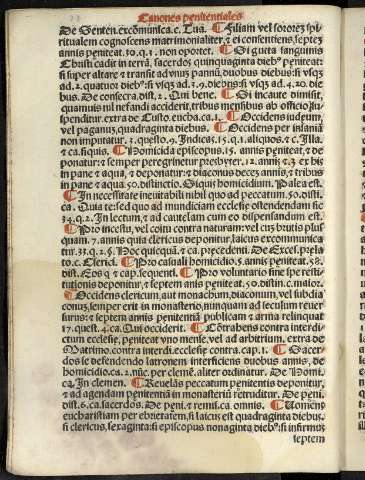 Canones penitentiales
De Senten. excōmunica. c. Tua. ¶ Filiam vel sororez spi
ritualem cognoscens matrimonialiter, ⁊ ei consentiens, septez
annis peniteat. 30. q. 1. non oportet. ¶ Si gutta sanguinis
Christi cadit in terrā, sacerdos quinquaginta dieb⁹ peniteat:
si super altare ⁊ transit ad vnus pannū, duobus diebus: si vsq₃
ad .2. quatuor dieb⁹: si vsq₃ ad .3. 9. dieb⁹: si vsq₃ ad .4. 20. die
bus. De consecra. dist. 2. Qui bene. ¶ Si incaute dimisit,
quamuis nil nefandi acciderit, tribus mensibus ab officio su
spenditur. extra de Custo. eucha. ca. 1. ¶ Occidens iudeum,
vel paganus, quadraginta diebus. ¶ Occidens per insaniā
non imputatur. 1. questo. 9. Indicas. 15. q. 1. aliquos, ⁊ c. Illa.
⁊ ca. siquis. ¶ Homicida episcopus. 15. annis peniteat, ⁊ de
ponatur: ⁊ semper peregrinetur presbyter. 12. annis ⁊ 3 ex his
in pane ⁊ aqua, ⁊ deponatur: ⁊ diaconus decez annis, ⁊ tribus
in pane ⁊ aqua. 50. distinctio. Siquis homicidium. Palea est.
¶ In necessitate incuitabili nibil quo ad peccatum. 50. disti.
ca. Quia te: sed quo ad mundiciam ecclesie ostendendam sic
34. q. 2. In lectum, ⁊ ad cautelam cum eo dispensandum est.
¶ Pro incestu, vel coitu contra naturam: vel cuz brutio plus
quam. 7. annis quia clericus deponitur, laicus excōmunica
tur. 33. q. 2. §. Hoc quicquā. ⁊ ca. precedenti. De Excel. prela
to. c. Clerici. ¶ Pro casuali homicidio. 5. annis peniteat. 58.
dist. Eos q̄ ⁊ cap. sequenti. ¶ Pro voluntario sine spe resti
tutionis deponitur, ⁊ septem anis peniteat. 50. distin. c. maior.
¶ Occidens clericum, aut monachum, diaconum, vel subdia
conuz, semper erit in monasterio, nunquam ad seculum reuer
surus: ⁊ septem annis penitentiā publicam ⁊ arma relinquat
17. quest. 4. ca. Qui occiderit. ¶ Cōtrahens contra interdi
ctum ecclesie, peniteat vno mense, vel ad arbitrium. extra de
Matrimo. contra interdi. ecclesie contra. cap. 1. ¶ Sacer
dos se defendendo latronem interficiens duobus annis, de
homicidio. ca. 2. nūc. per clemē. aliter ordinatur. De Homi.
ca. In clemen. ¶ Reuelās peccatum penitentis deponitur,
⁊ ad agendam penitentiā in monasteriū retruditur. De peni.
dist. 6. ca. sacerdos. De peni. ⁊ remis. ca. omnis. ¶ Uomens
eucharistiam per ebrietatem, si laicus est quadraginta diebus,
si clericus, sexaginta: si episcopus nonaginta dieb⁹: si infirmus
septem